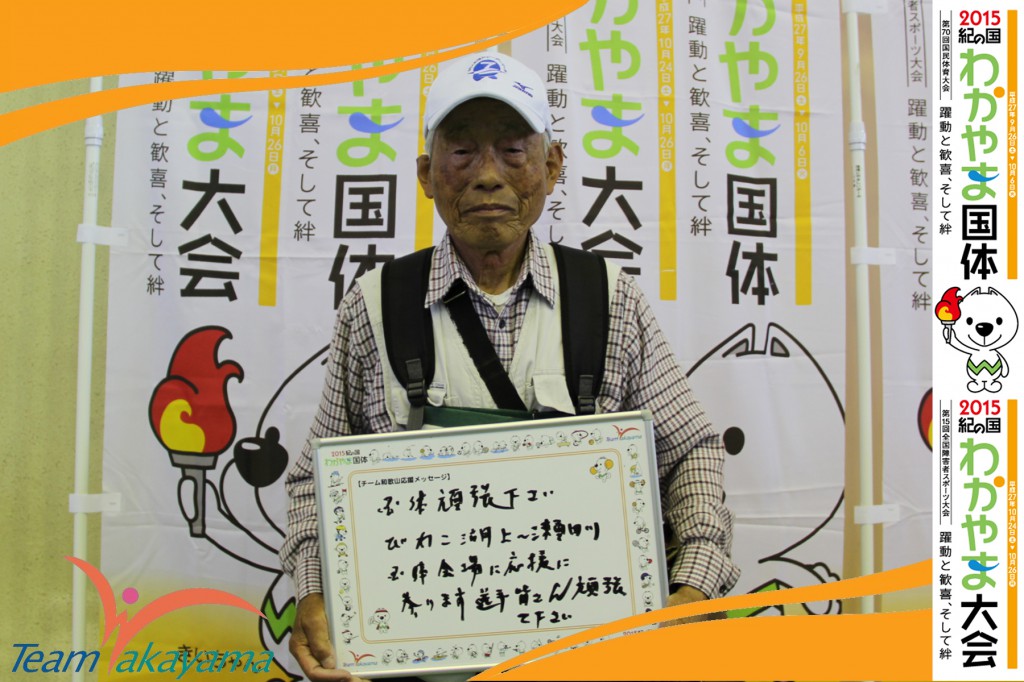 躍動と歓喜、そして絆
大会
10月26日㊊
躍動と歓喜、そ
やま
国体
かやま
大会
平成27年10月24日㊏▼10月26日㊊
躍動と歓喜、そして絆
やま
国体
平成27年9月26日㊏▼10月6日㊋
スポーツ大会
躍動と歓喜、そして絆
2015
紀の国
わかやま国体
第70回国民体育大会
躍動と歓喜、そして絆
平成27年9月26日㊏▼10月6日㊋
2015
紀の国
わかやま大会
第15回全国障害者スポーツ大会
躍動と歓喜、そして絆
平成27年10月24日㊏▼10月26日㊊
2015
紀の国
わかやま国体
Team Wakayama
【チーム和歌山応援メッセージ】
国体頑張下さい
びわこ湖上〜瀬田川
国体会場に応援に
参ります選手皆さん頑張
て下さい
Team Wakayama
Team Wakayama